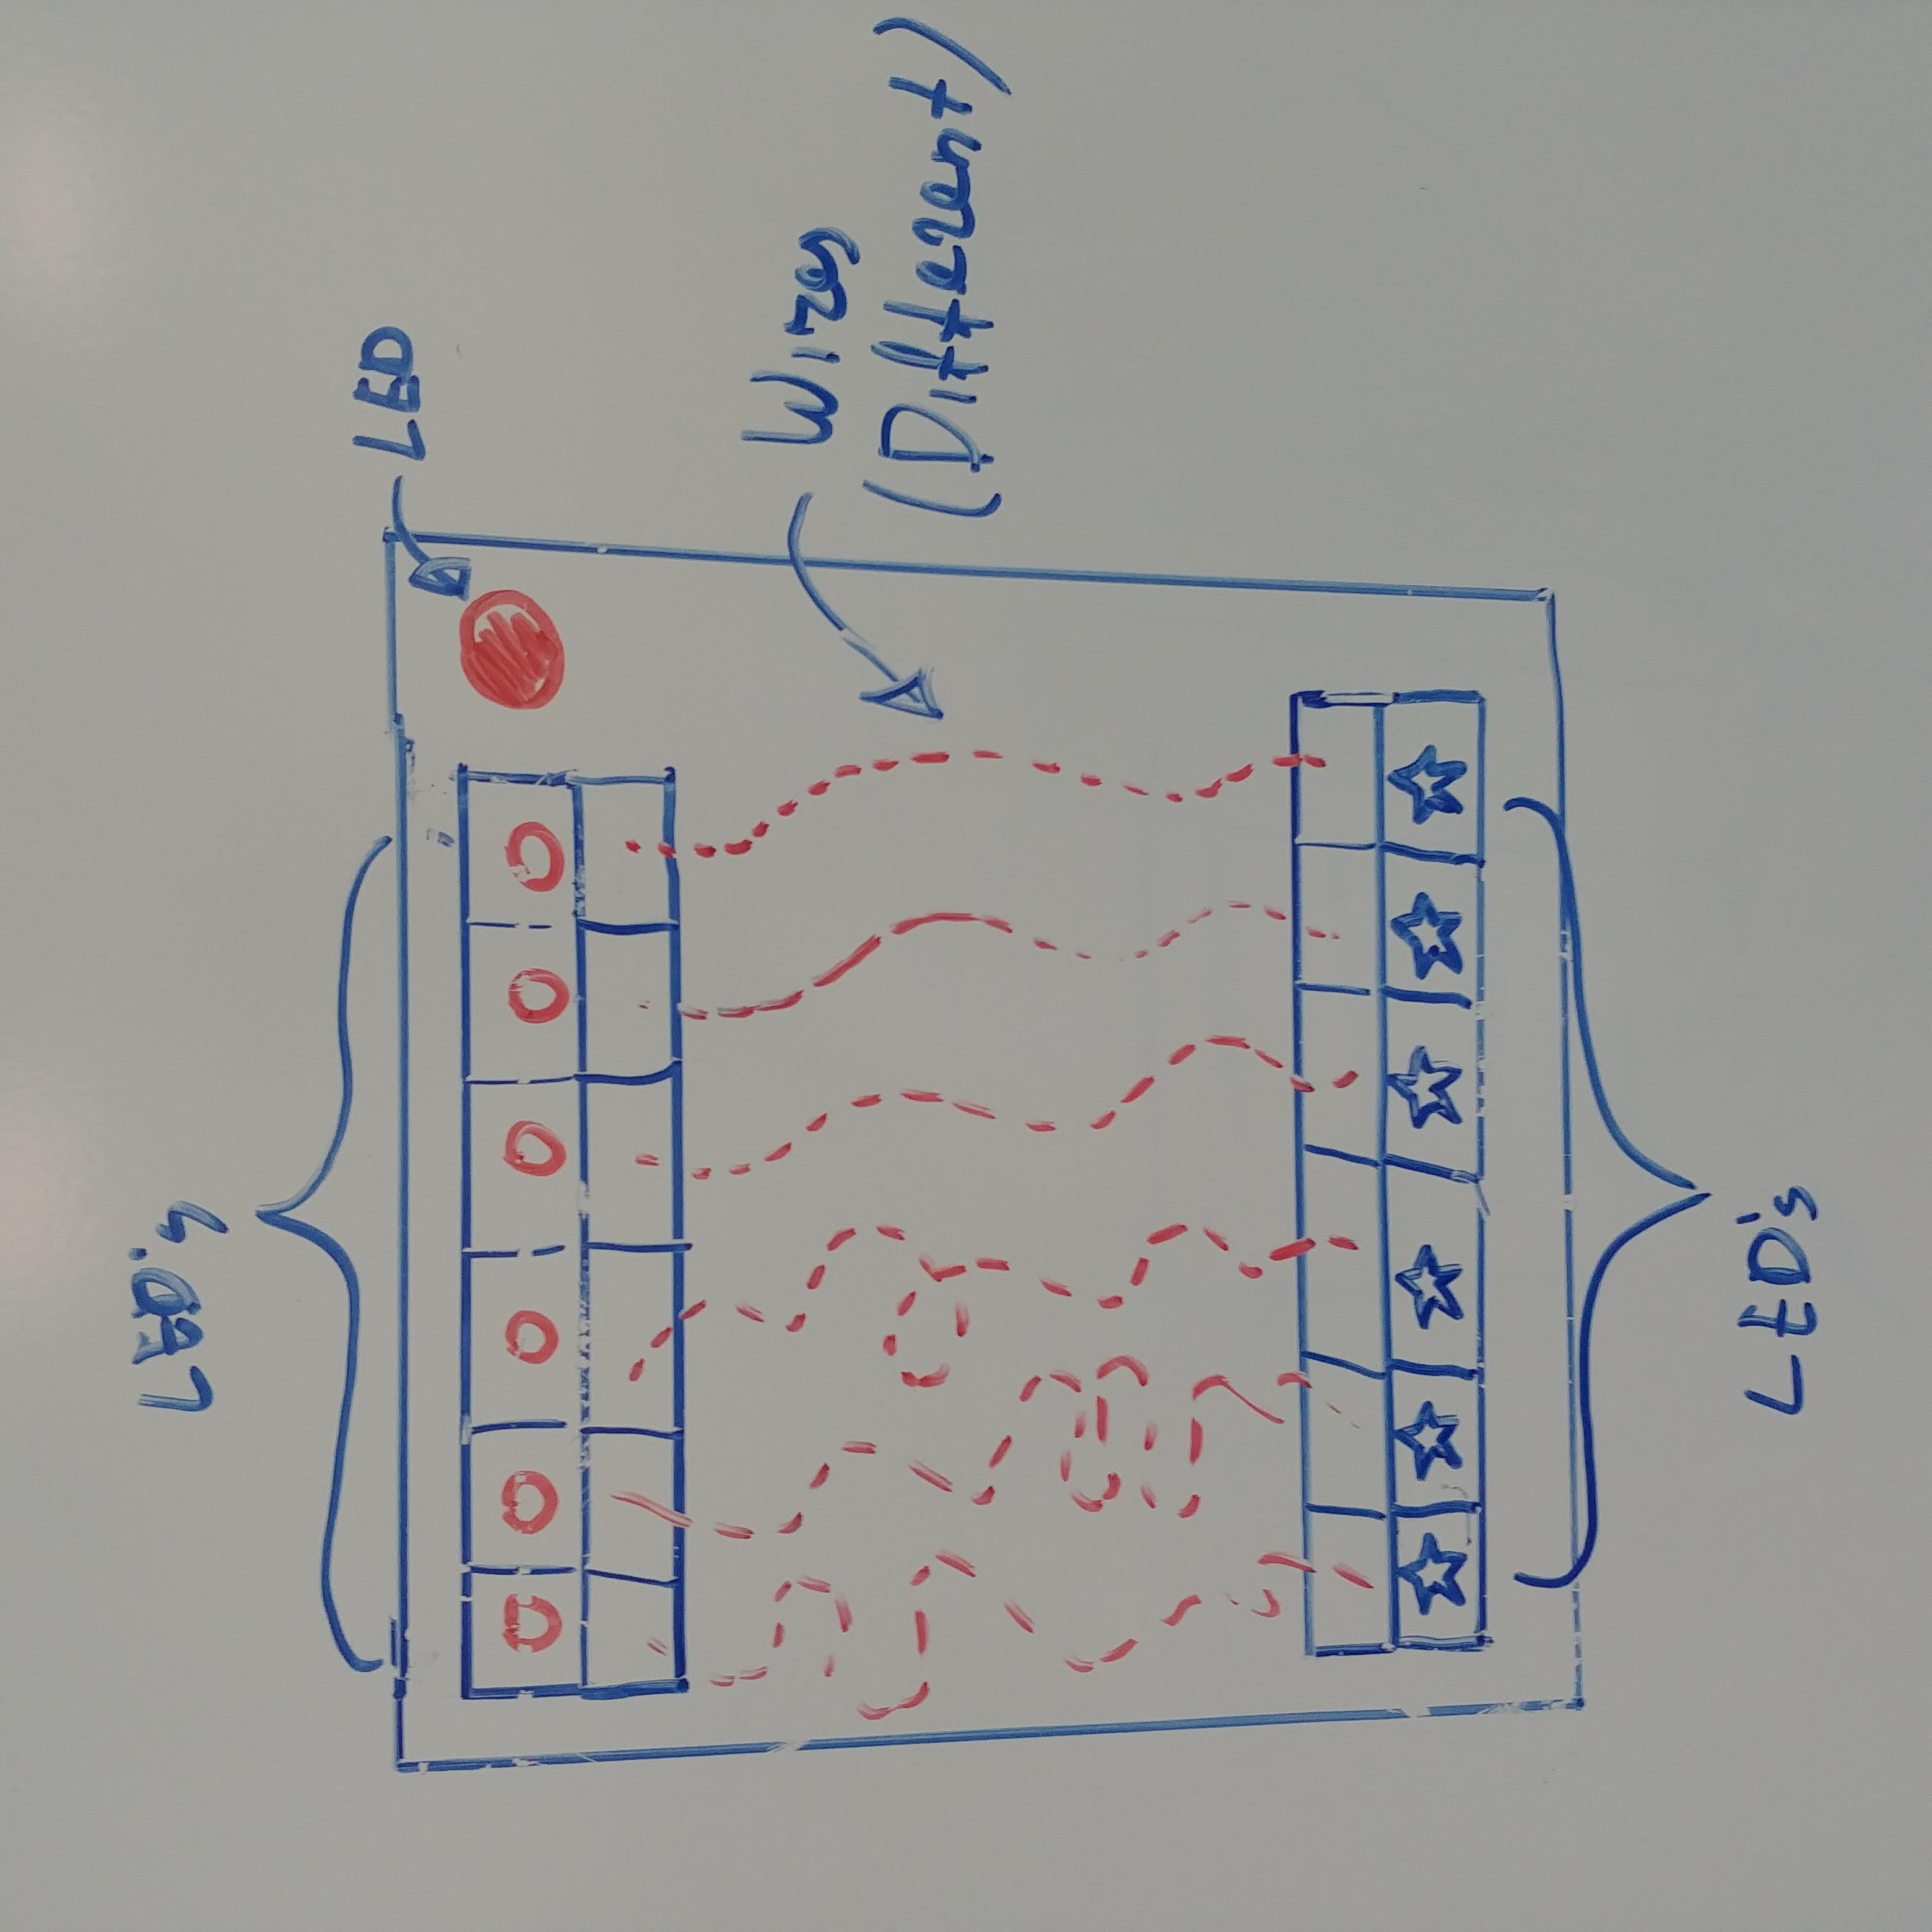 LED's
LED
Wires
(Different)
LED's